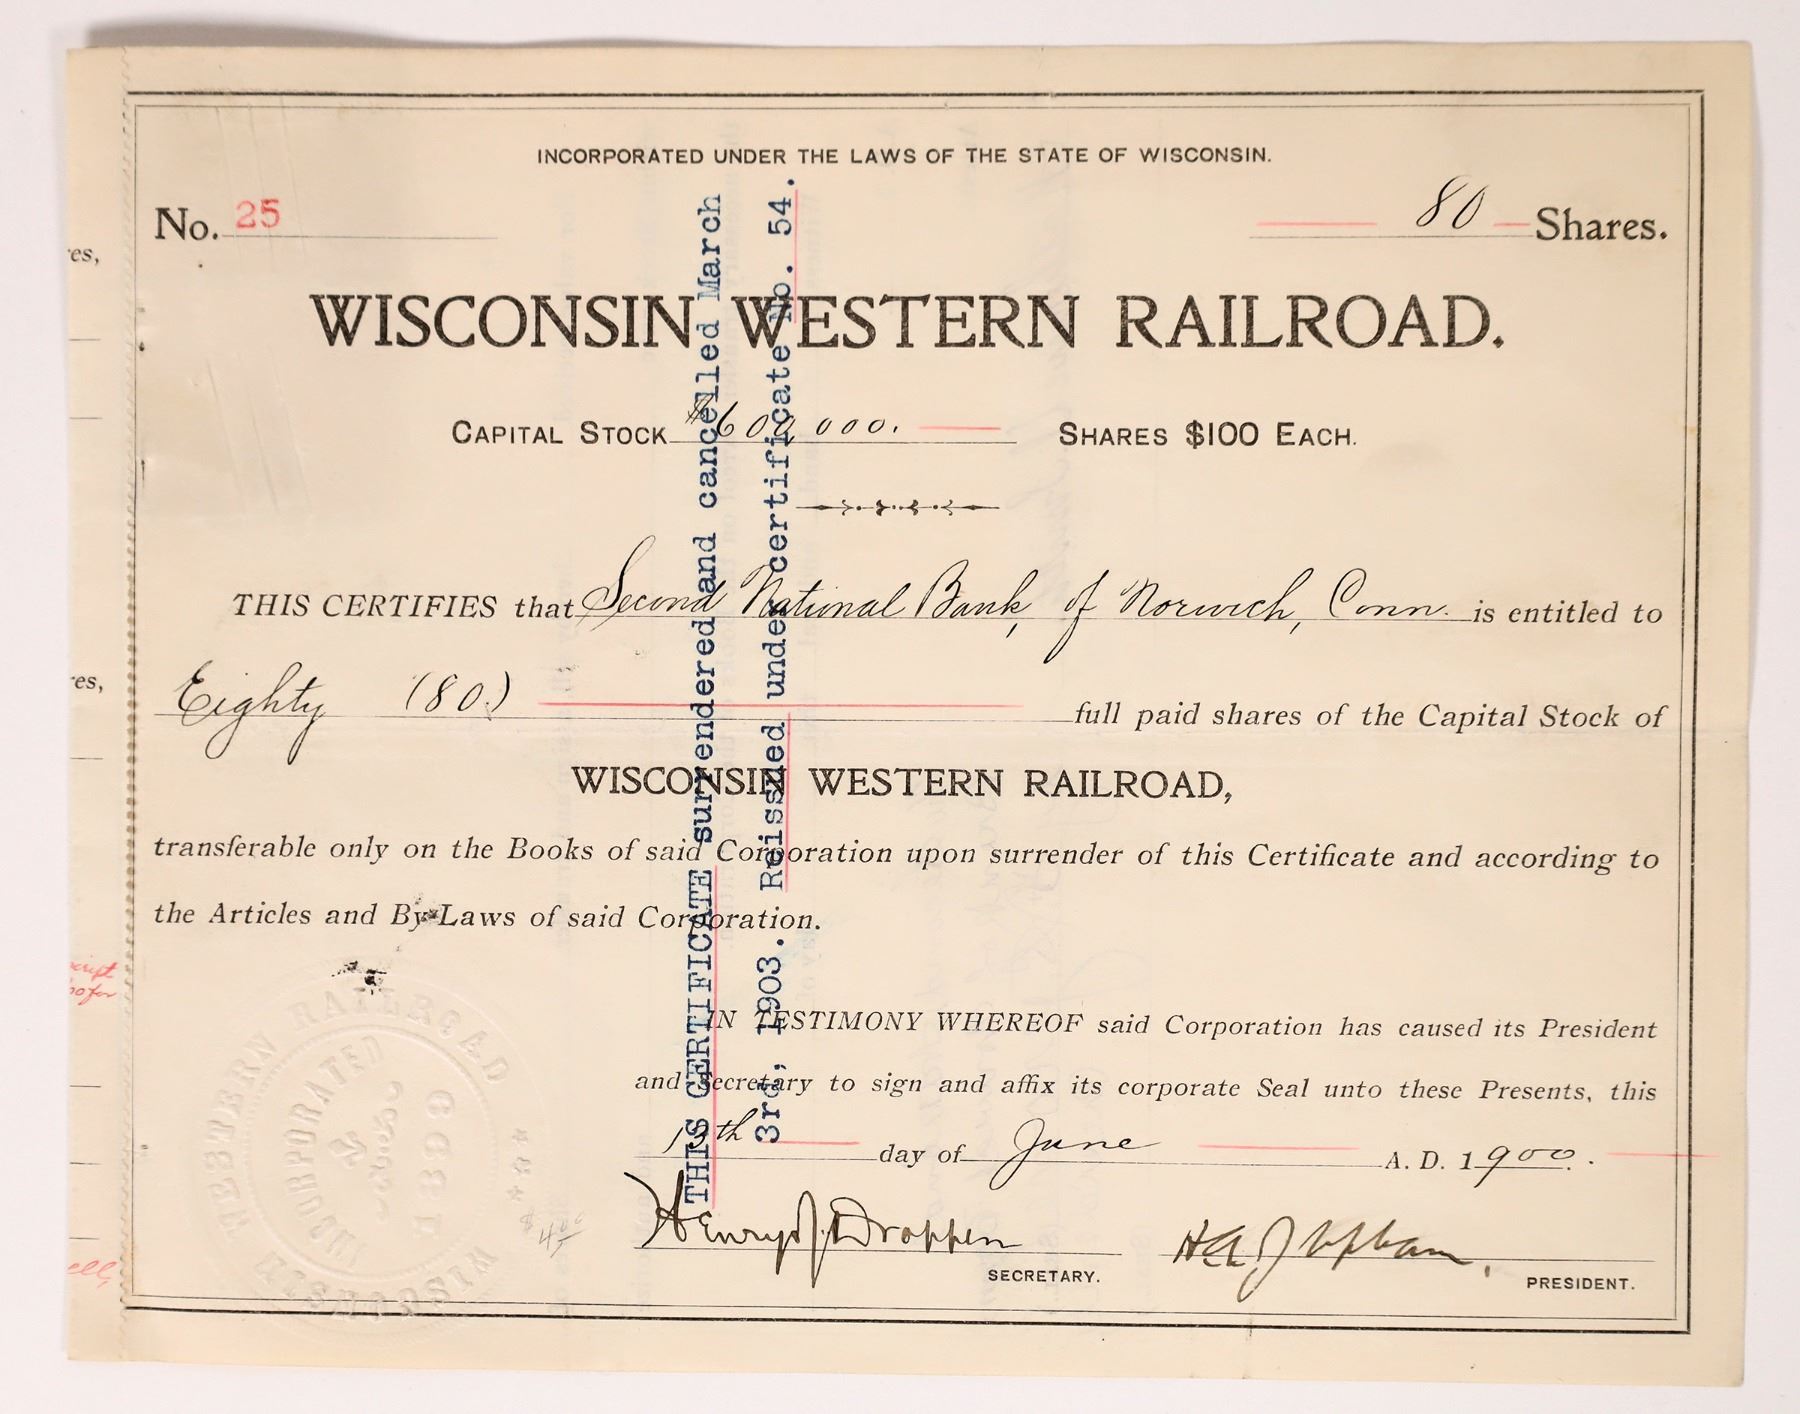 INCORPORATED UNDER THE LAWS OF THE STATE OF WISCONSIN.
No. 25
80 Shares.
WISCONSIN WESTERN RAILROAD.
CAPITAL STOCK $600,000. SHARES $100 EACH.
THIS CERTIFIES that Second National Bank, of Norwich, Conn. is entitled to
Eighty (80) full paid shares of the Capital Stock of
WISCONSIN WESTERN RAILROAD,
transferable only on the Books of said Corporation upon surrender of this Certificate and according to
the Articles and By-Laws of said Corporation.
IN TESTIMONY WHEREOF said Corporation has caused its President
and Secretary to sign and affix its corporate Seal unto these Presents, this
13th day of June A. D. 1900.
Henry J. Droppers
SECRETARY.
PRESIDENT.
THIS CERTIFICATE surrendered and cancelled March
3rd, 1903. Reissued under certificate No. 54.
WISCONSIN WESTERN RAILROAD
INCORPORATED
$4.00
es,
es,